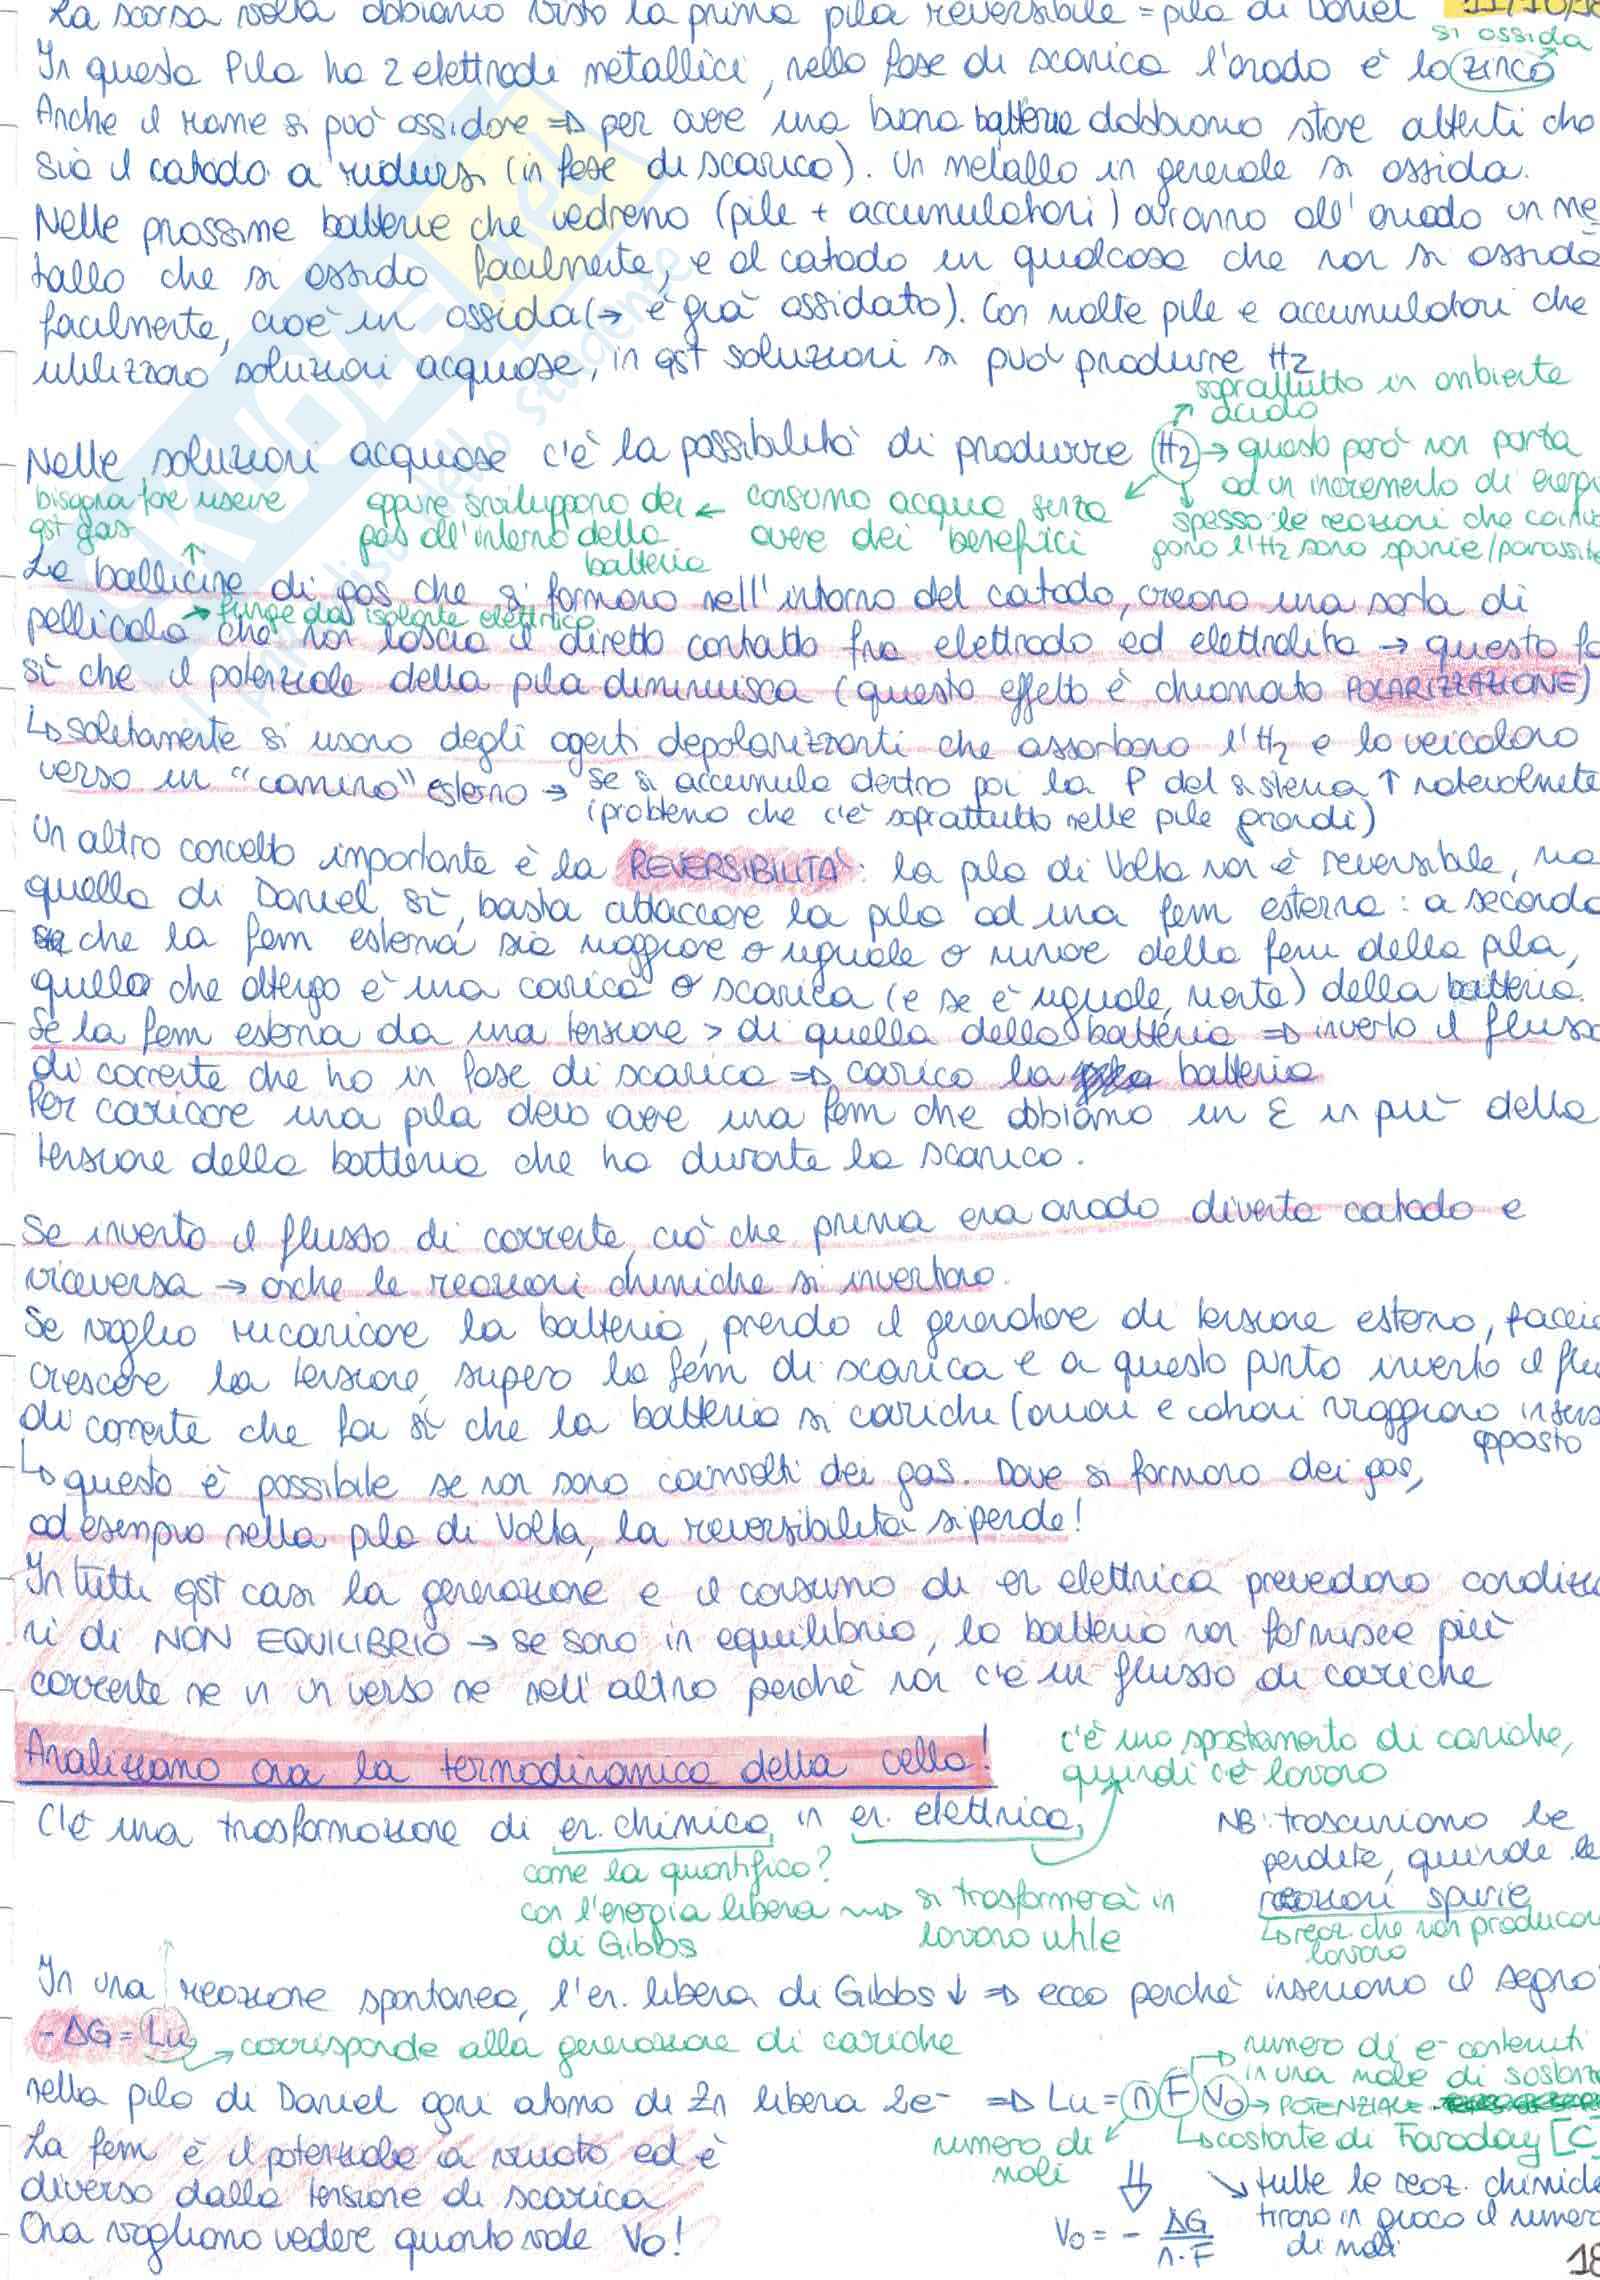 La scorsa volta abbiamo visto la prima pila reversibile = pila di Daniel 11/10/18
si ossida
In questa Pila ho 2 elettrodi metallici, nella fase di scarica l'anodo è lo zinco
Anche il rame si può ossidare => per avere una buona batteria dobbiamo stare attenti che
sia il catodo a ridursi (in fase di scarica). Un metallo in generale si ossida.
Nelle prossime batterie che vedremo (pile + accumulatori) avranno all'anodo un me
tallo che si ossida facilmente, e al catodo un qualcosa che non si ossida
facilmente, cioè un ossida (→ è già ossidato). Con molte pile e accumulatori che
utilizzano soluzioni acquose, in qst soluzioni si può produrre H2
soprattutto in ambiente
acido
Nelle soluzioni acquose c'è la possibilità di produrre H2 → questo però non porta
ad un incremento di energi
bisogna fare uscire
qst gas
oppure sviluppano dei
gas all'interno della
batteria
← consumo acqua senza
avere dei benefici
spesso le reazioni che coinvol
gono l'H2 sono spurie/parassite
Le bollicine di gas che si formano nell'intorno del catodo, creano una sorta di
→ funge da isolante elettrico
pellicola che non lascia il diretto contatto fra elettrodo ed elettrolita → questo fa
sì che il potenziale della pila diminuisca (questo effetto è chiamato POLARIZZAZIONE)
↳ solitamente si usano degli agenti depolarizzanti che assorbano l'H2 e lo veicolano
verso un "camino" esterno → se si accumula dentro poi la P del sistema ↑ notevolmente
(problema che c'è soprattutto nelle pile grandi)
Un altro concetto importante è la REVERSIBILITÀ: la pila di Volta non è reversibile, ma
quella di Daniel sì, basta attaccare la pila ad una fem esterna: a seconda
che la fem esterna sia maggiore o uguale o minore della fem della pila,
quello che ottengo è una carica o scarica (e se è uguale, niente) della batteria.
Se la fem esterna da una tensione > di quella della batteria => inverto il flusso
di corrente che ho in fase di scarica => carico la batteria
Per caricare una pila devo avere una fem che abbiamo un ε in più della
tensione della batteria che ho durante la scarica.
Se inverto il flusso di corrente, ciò che prima era anodo diventa catodo e
viceversa → anche le reazioni chimiche si invertono.
Se voglio ricaricare la batteria, prendo il generatore di tensione esterno, faccio
crescere la tensione, supero la fem di scarica e a questo punto inverto il flu
di corrente che fa sì che la batteria si carichi (anioni e cationi viaggiano in senso
opposto
↳ questo è possibile se non sono coinvolti dei gas. Dove si formano dei gas,
ad esempio nella pila di Volta, la reversibilità si perde!
In tutti qst casi la generazione e il consumo di en elettrica prevedono condizio
ni di NON EQUILIBRIO → se sono in equilibrio, la batteria non fornisce più
corrente ne in un verso ne nell'altro perchè non c'è un flusso di cariche
Analizziamo ora la termodinamica della cella!
c'è uno spostamento di cariche,
quindi c'è lavoro
C'è una trasformazione di en. chimica in en. elettrica,
NB: trascuriamo le
perdite, quindi le
reazioni spurie
↳ reaz. che non producono
lavoro
come la quantifico?
con l'energia libera
di Gibbs
si trasformerà in
lavoro utile
In una reazione spontanea, l'en. libera di Gibbs ↓ => ecco perchè inseriamo il segno
- ΔG = Lu → corrisponde alla generazione di cariche
numero di e- contenuti
in una mole di sostanza
nella pila di Daniel ogni atomo di Zn libera 2e- => Lu = n F V0 → POTENZIALE
numero di
moli
↳ costante di Faraday [C
La fem è il potenziale a vuoto ed è
diverso dalla tensione di scarica
Ora vogliamo vedere quanto vale V0!
tutte le reaz. chimiche
tirano in gioco il numero
di moli
V0 = - ΔG / n·F
18